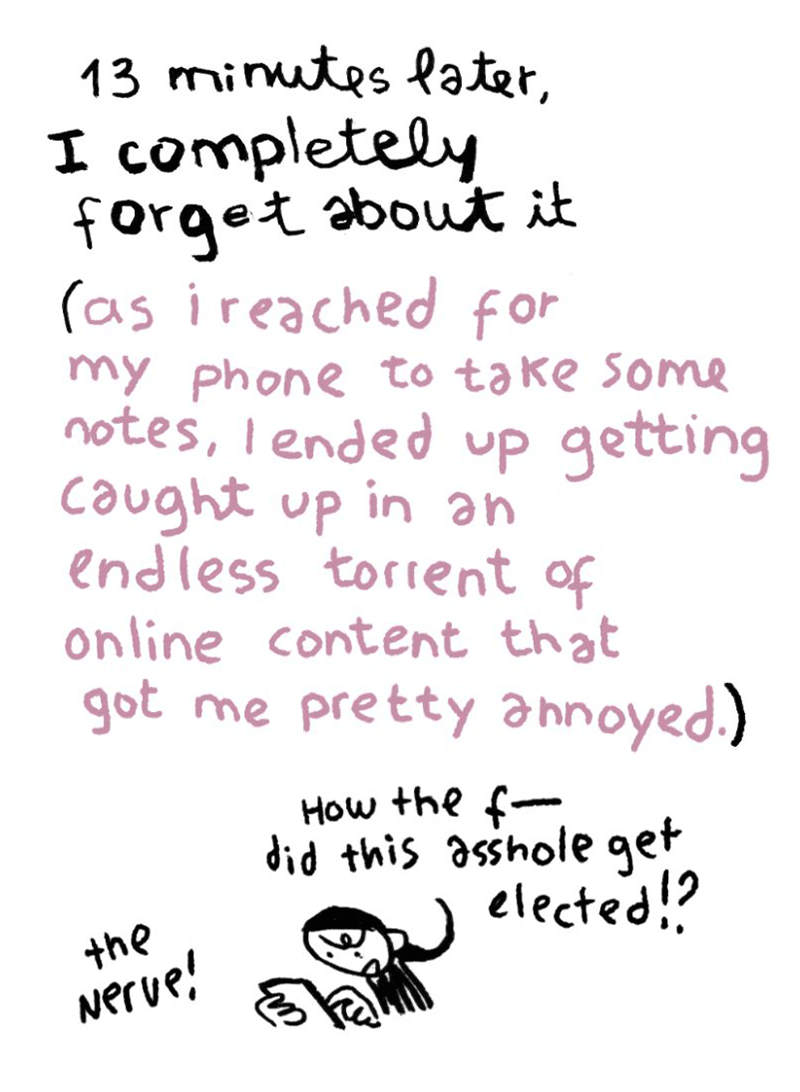 13 minutes later,
I completely
forget about it
(as i reached for
my phone to take some
notes, I ended up getting
caught up in an
endless torrent of
online content that
got me pretty annoyed.)
How the f—
did this asshole get
elected!?
the
nerve!